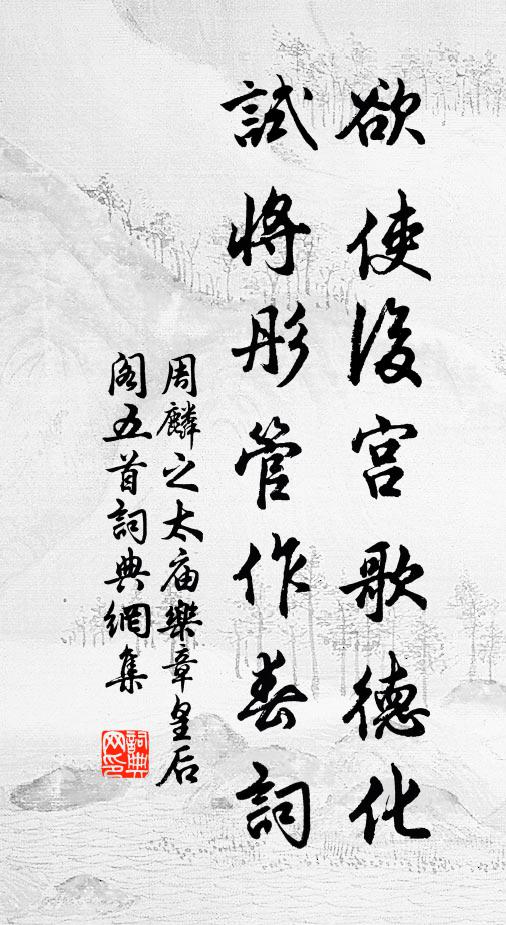 欲使後宮歌德化
試將彤管作春詞
周麟之太庙樂章皇后
阁五首詞典網集
詞典
网印